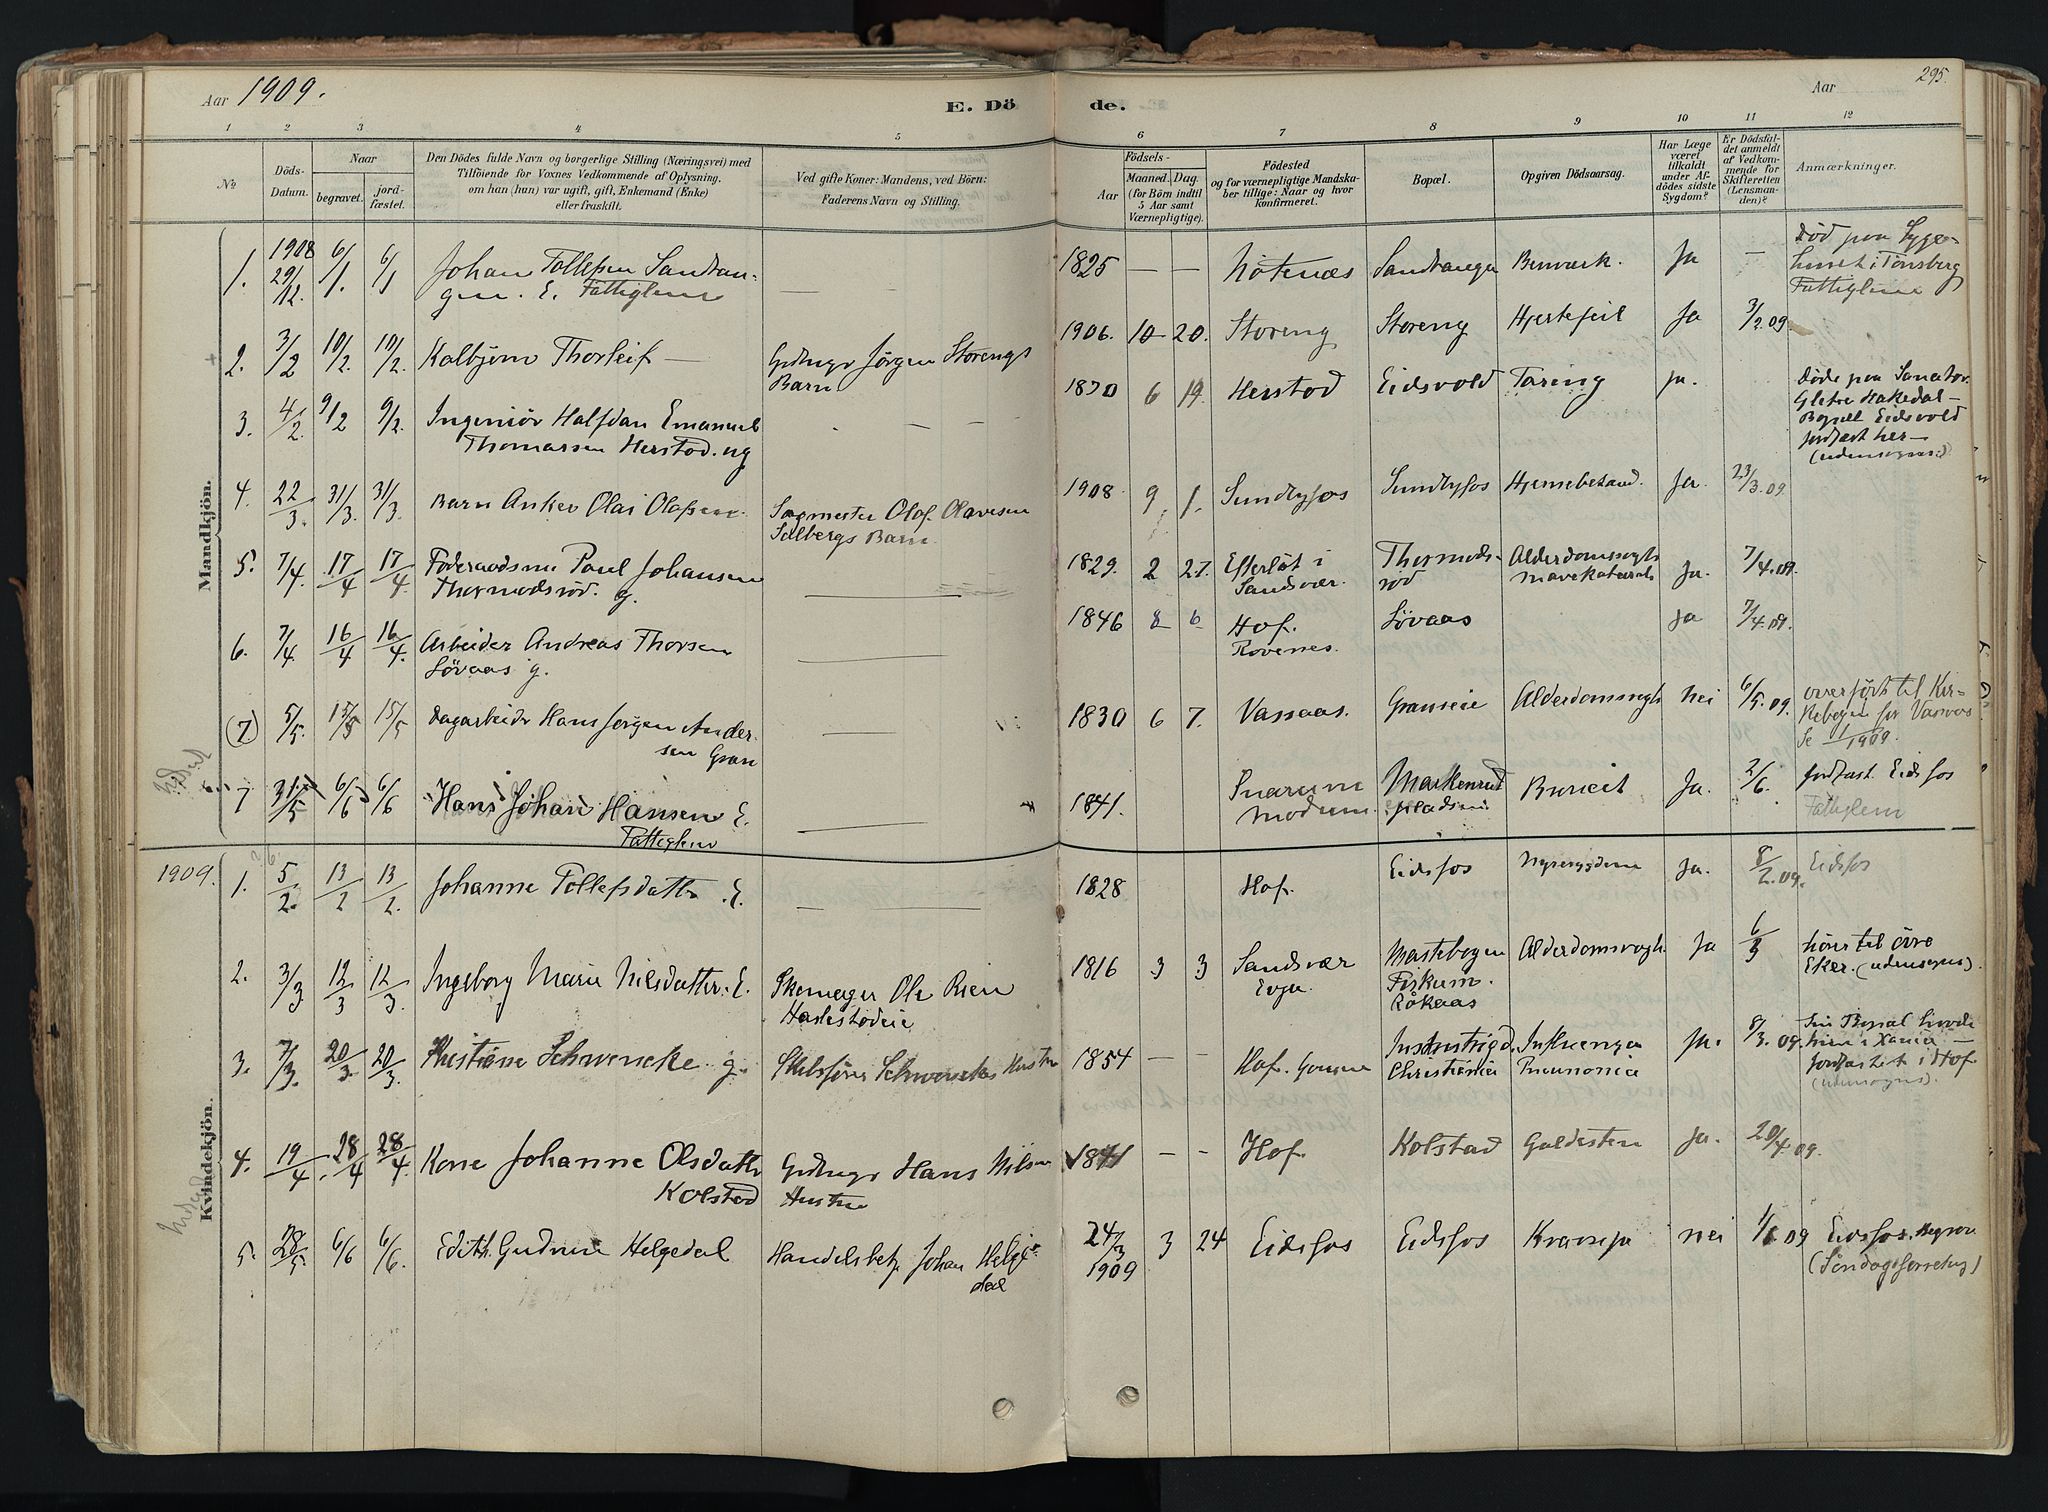 Aar 1909.
E. Dö de.
Aar
295.
1 2 3 4 5 6 7 8 9 10 11 12
No
Döds-
Datum.
Naar
begravet.
jord-
fæstet.
Den Dödes fulde Navn og borgerlige Stilling (Næringsvei) med
Tilföiende for Voxnes Vedkommende af Oplysning,
om han (hun) var ugift, gift, Enkemand (Enke)
eller fraskilt.
Ved gifte Koner: Mandens, ved Börn:
Faderens Navn og Stilling.
Födsels-
Aar
Maaned. Dag.
(for Börn indtil
5 Aar samt
Værnepligtige).
Födested
og for værnepligtige Mandska-
ber tillige: Naar og hvor
konfirmeret.
Bopæl.
Opgiven Dödsaarsag.
Har Læge
været
tilkaldt
under Af-
dödes sidste
Sygdom?
Er Dödsfal-
det anmeldt
af Vedkom-
mende for
Skifteretten
(Lensman-
den)?
Anmærkninger.
Mandkjön.
1. 1908 29/12. 6/1. 6/1 Johan Tollefsen Sandvan-
gen. E. Fattiglem
1825 — — Sandvangen Benværk. Ja —
Död paa Syge-
huset i Tönsberg
Fattiglem
2. 3/2 10/2. 10/2. Kolbjörn Thorleif — Gbdrugr Jörgen Storengs
Barn
1906. 10 20. Storeng Storeng Hjertefeil Ja 3/2.09.
3. 4/2. 9/2 9/2. Ingeniör Halfdan Emanuel
Thomassen Herstad. ug
1830 6 19. Herstad Eidsvold Tæring ja.
Döde paa Sanator.
Hakedal—
Bopæl Eidsvold
jordfæst her—
(udensogns)
4. 22/3. 31/3. 31/3. Barn Anker Olai Olafsen Sagmester Olaf Olavesen
Solbergs Barn
1908. 9. 1. Sundbyfos Sundbyfos Hjernebetænd. Ja. 23/3.09.
5. 7/4. 17/4 17/4. Föderaadsm Paul Johansen
Thormodsröd. g.
1829. 2 27. Efterlöt i
Sandsvær.
Thormods-
röd
Alderdomssvagh
Mavekatarrh
Ja. 7/4.09.
6. 7/4. 16/4 16/4. Arbeider Andreas Thorsen
Lövaas g.
1846 8 6 Hof.
Rovenes.
Lövaas ja 7/4.09.
(7) 5/5. 15/5 15/5 Dagarbeider Hans Jörgen Ander-
sen Gran
1830 6 7. Vassaas. Graneie Alderdomssvgh nei 6/5.09.
overfört til Kir-
kebogen for Vasaas
Se 1909.
7 31/5 6/6 6/6 Hans Johan Hansen E.
Fattiglem
1841. Snarum
Modum
Markerud
Ja. 2/6.
jordfæst. Eidsfos
Fattiglem
Kvindekjön.
1909. 1. 5/2. 13/2 13/2. Johanne Tollefsdatter. E.
1828 Hof. Eidsfos Nyresygdom Ja. 8/2.09. Eidsfos
2. 3/3 12/3 12/3 Ingeborg Marie Nilsdatter. E. Skomager Ole Rien
1816 3 3 Sandsvær
Mastebogen
Fiskum.
Rökaas
Alderdomsvagh. Ja 6/3
hörer til övre
Eker. (udensogns)
3. 7/3. 20/3. 20/3. Kristiane Schwencke g. Skibsförer Schwenckes Hustru
1854 — — Hof.
Industrigd.
Christiania
Influenza
Pneumonia
Ja. 8/3.09.
jordfæstet i Hof
(udensogns).
4. 19/4. 28/4 28/4. Kone Johanne Olsdatter
Kolstad
Gbdrugr Hans Nilsen
Hustru
1841 — - Hof Kolstad Galdesten ja. 20/4.09.
5. 28/5 6/6 6/6. Edith Gudrun Helgedal Handelsbetj Johan Helge-
dal
24/3
1909
3 24 Eidsfos Eidsfos Krampe nei 1/6 09 Eidsfos.
(Söndagsforretng)